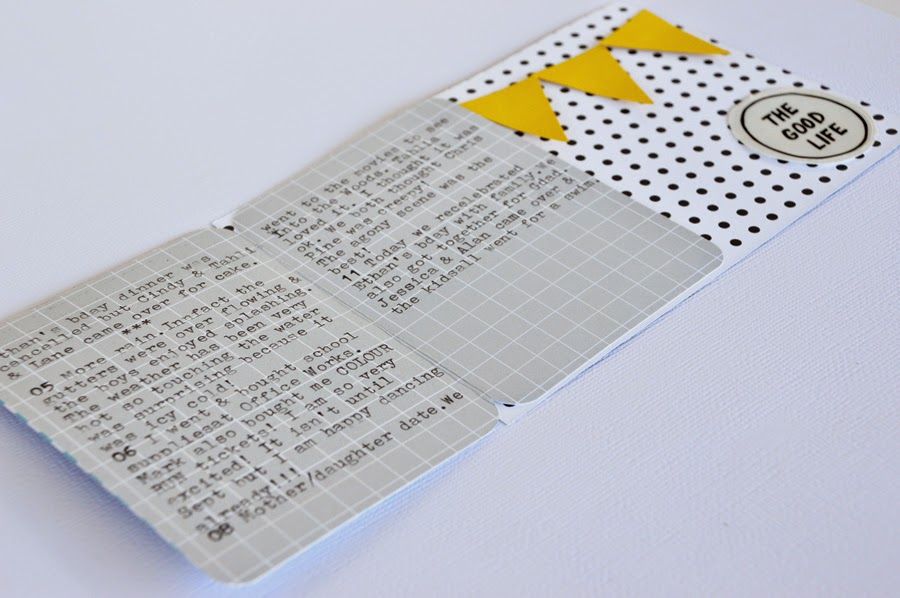 than's bday dinner was
cancelled but Cindy & Tahli
& Lane came over for cake.
***
05 More rain.Innfact the
gutters were over flowing &
the boys enjoyed splashing.
The weather has been very
hot so touching the water
was surprising because it
was icy cold!
06 I went & bought school
suppliesat Office Works.
Mark also bought me COLOUR
RUN tickets! I am so very
excited! It isn't until
Sept but I am happy dancing
already!!!
08 Mother/daughter date.We
went to the movies to see
Into the Woods. Tahlia
loved it.I thought it was
ok. We both thought Chris
Pine was creepy!
The agony scene was the
best!
11 Today we recelebrated
Ethan's bday with family.We
also got together for Dad.
Jessica & Alan came over &
the kidsall went for a swim
THE
GOOD
LIFE